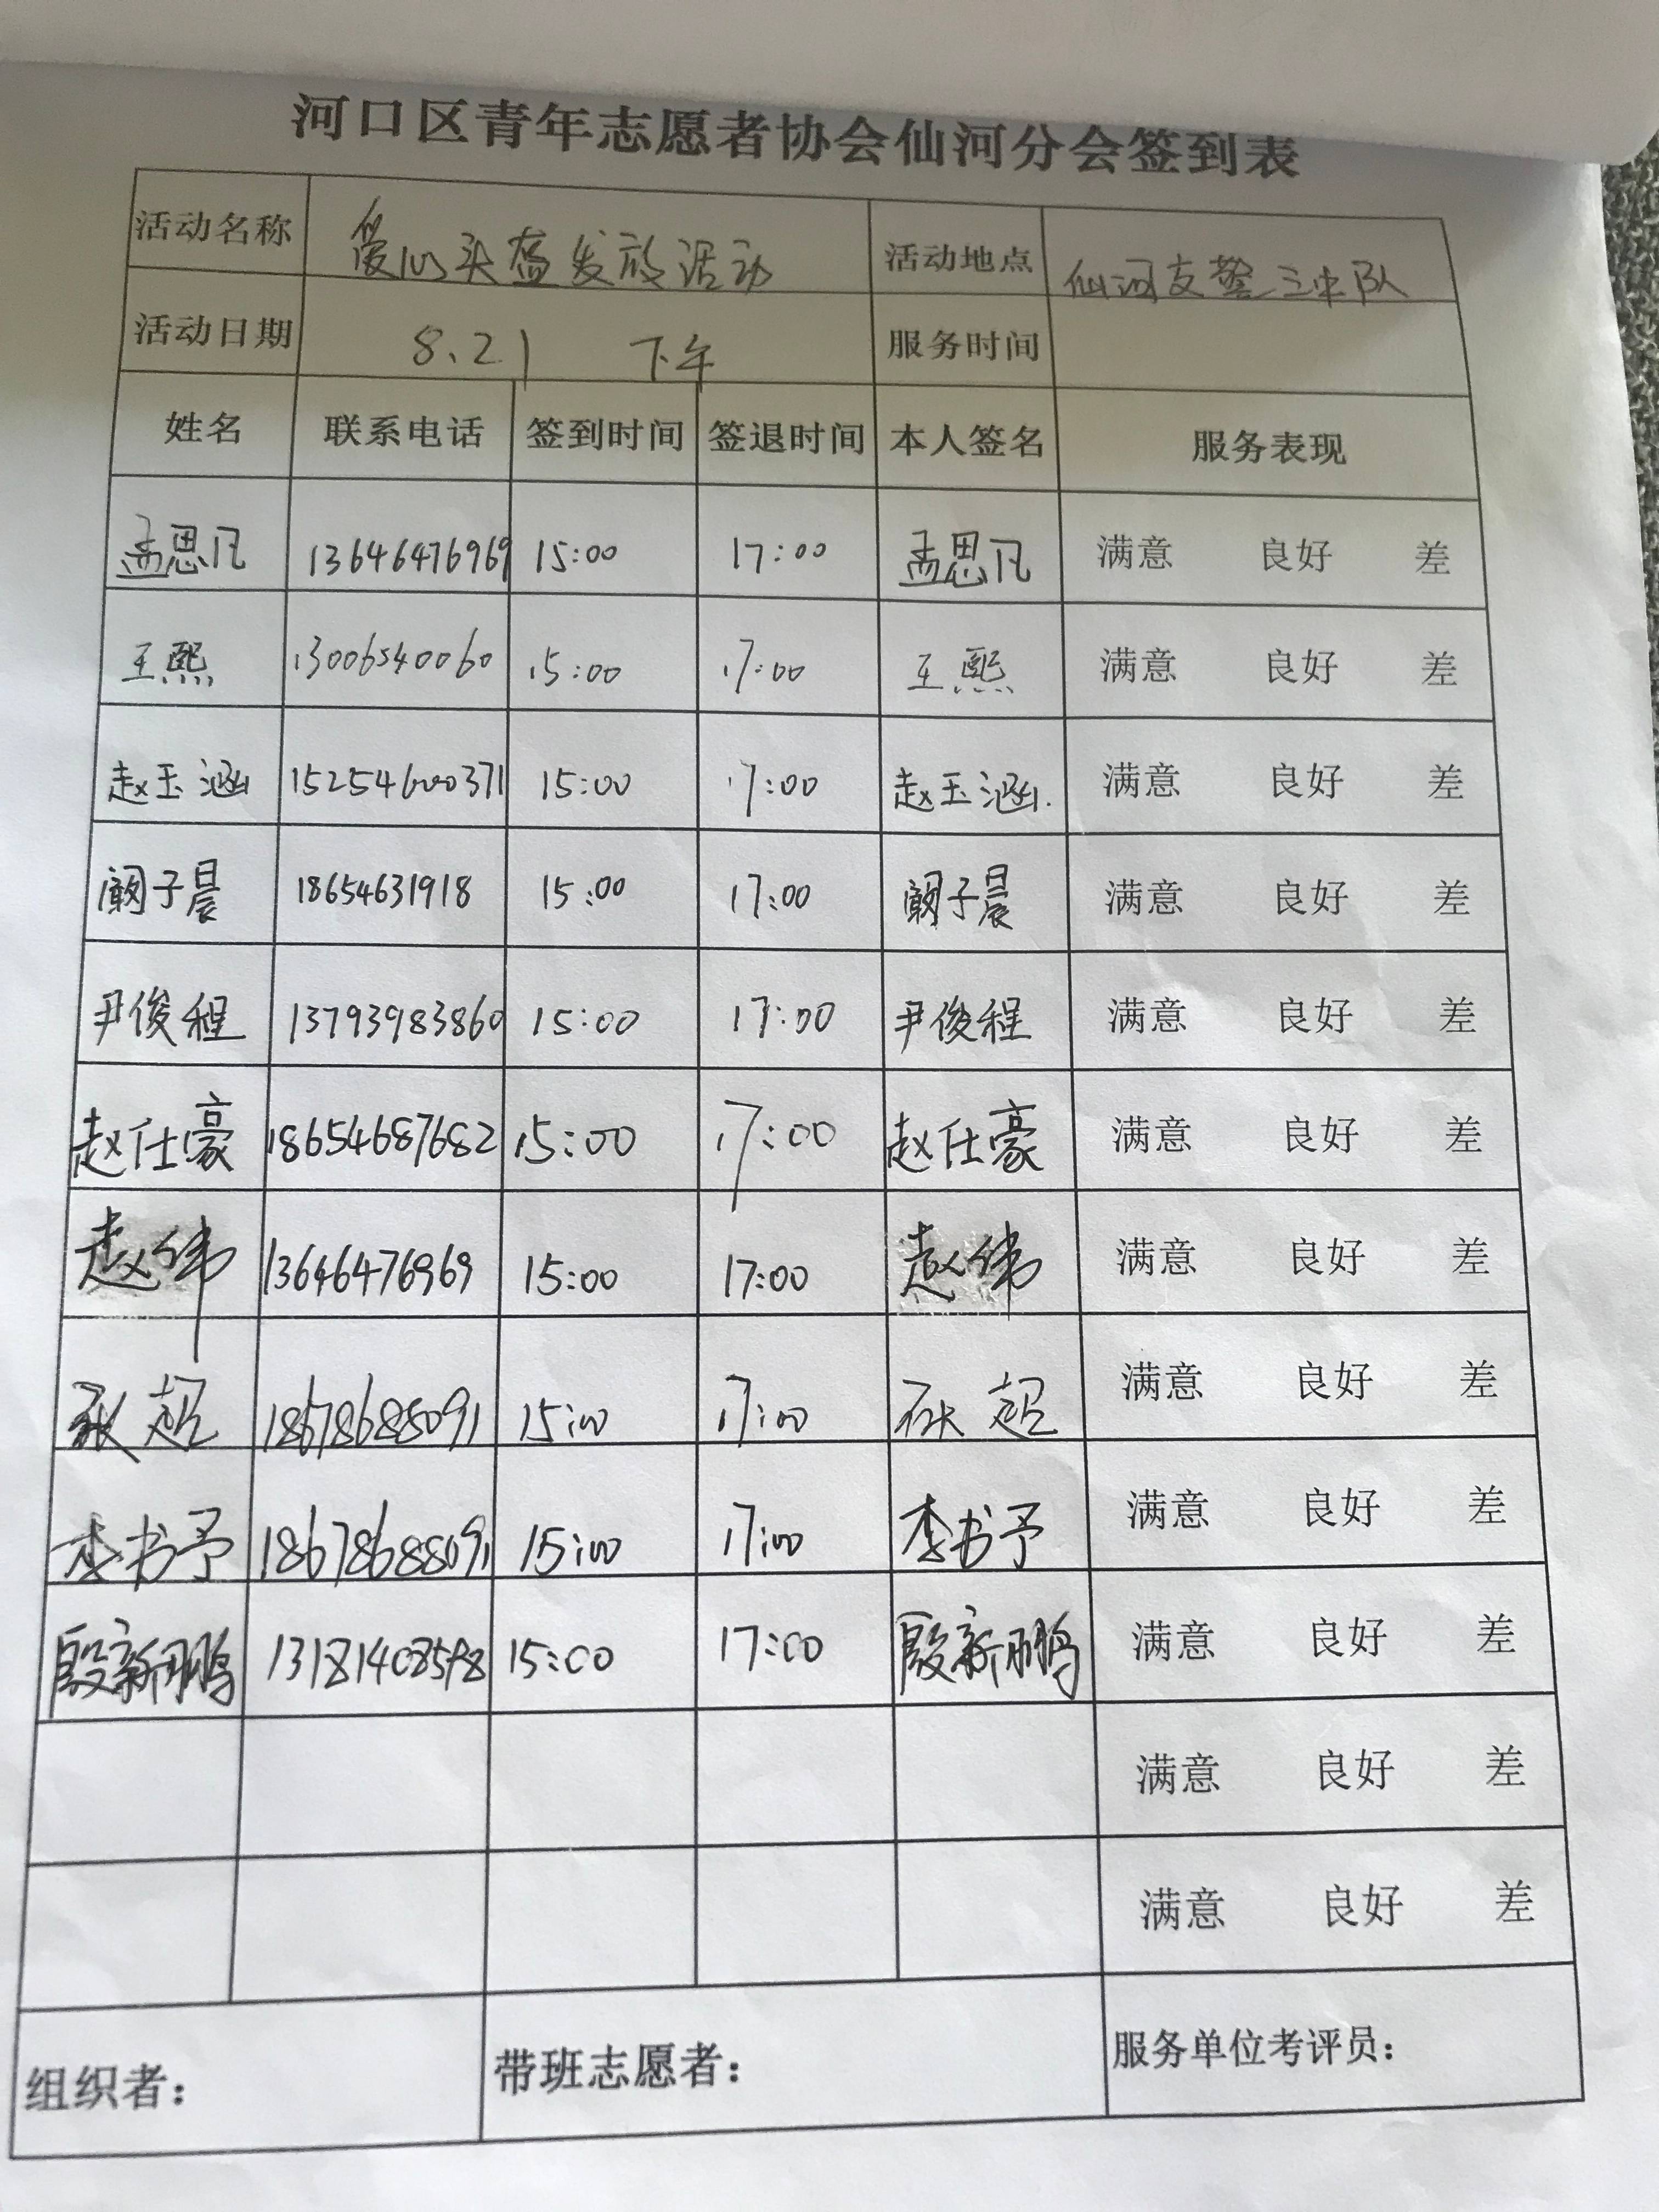 河口区青年志愿者协会仙河分会签到表
活动名称 爱心头盔发放活动 活动地点 仙河交警三中队
活动日期 8.21 下午 服务时间
姓名 联系电话 签到时间 签退时间 本人签名 服务表现
孟思凡 13646476969 15:00 17:00 孟思凡 满意 良好 差
王熙 13006540060 15:00 17:00 王熙 满意 良好 差
赵玉涵 15254600371 15:00 17:00 赵玉涵. 满意 良好 差
阚子晨 18654631918 15:00 17:00 阚子晨 满意 良好 差
尹俊程 13793983860 15:00 17:00 尹俊程 满意 良好 差
赵仕豪 18654687682 15:00 17:00 赵仕豪 满意 良好 差
赵伟 13646476969 15:00 17:00 赵伟 满意 良好 差
超 18678688091 15:00 17:00 超 满意 良好 差
李书予 18678688091 15:00 17:00 李书予 满意 良好 差
殷新鹏 15:00 17:00 殷新鹏 满意 良好 差
满意 良好 差
满意 良好 差
组织者： 带班志愿者： 服务单位考评员：